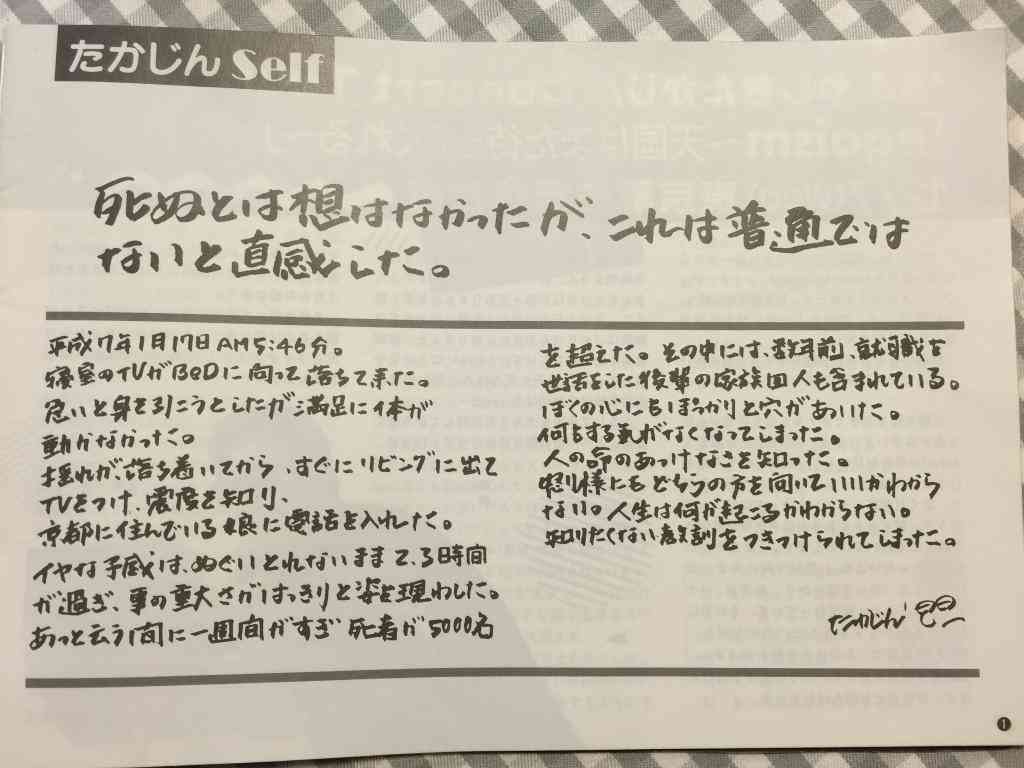 たかじん Self
死ぬとは想はなかったが、これは普通では
ないと直感した。
平成7年1月17日AM5:46分。
寝室のTVがBeDに向って落ちて来た。
思いと身を引こうとしたが満足に体が
動かなかった。
揺れが落ち着いてから、すぐにリビングに出て
TVをつけ、震度を知り、
京都に住んでいる娘に電話を入れた。
イヤな予感は、ぬぐいとれないまま2、3時間
が過ぎ、事の重大さがはっきりと姿を現わした。
あっと云う間に一週間がすぎ 死者が5000名
を超えた。その中には、数年前、就職を
世話をした後輩の家族四人も含まれている。
ぼくの心にもぽっかりと穴があいた。
何をする気がなくなってしまった。
人の命のあっけなさを知った。
怒り様にもどちらの方を向いていいかわから
ない。人生は何が起こるかわからない。
知りたくない教訓をつきつけられてしまった。
たかじん
1